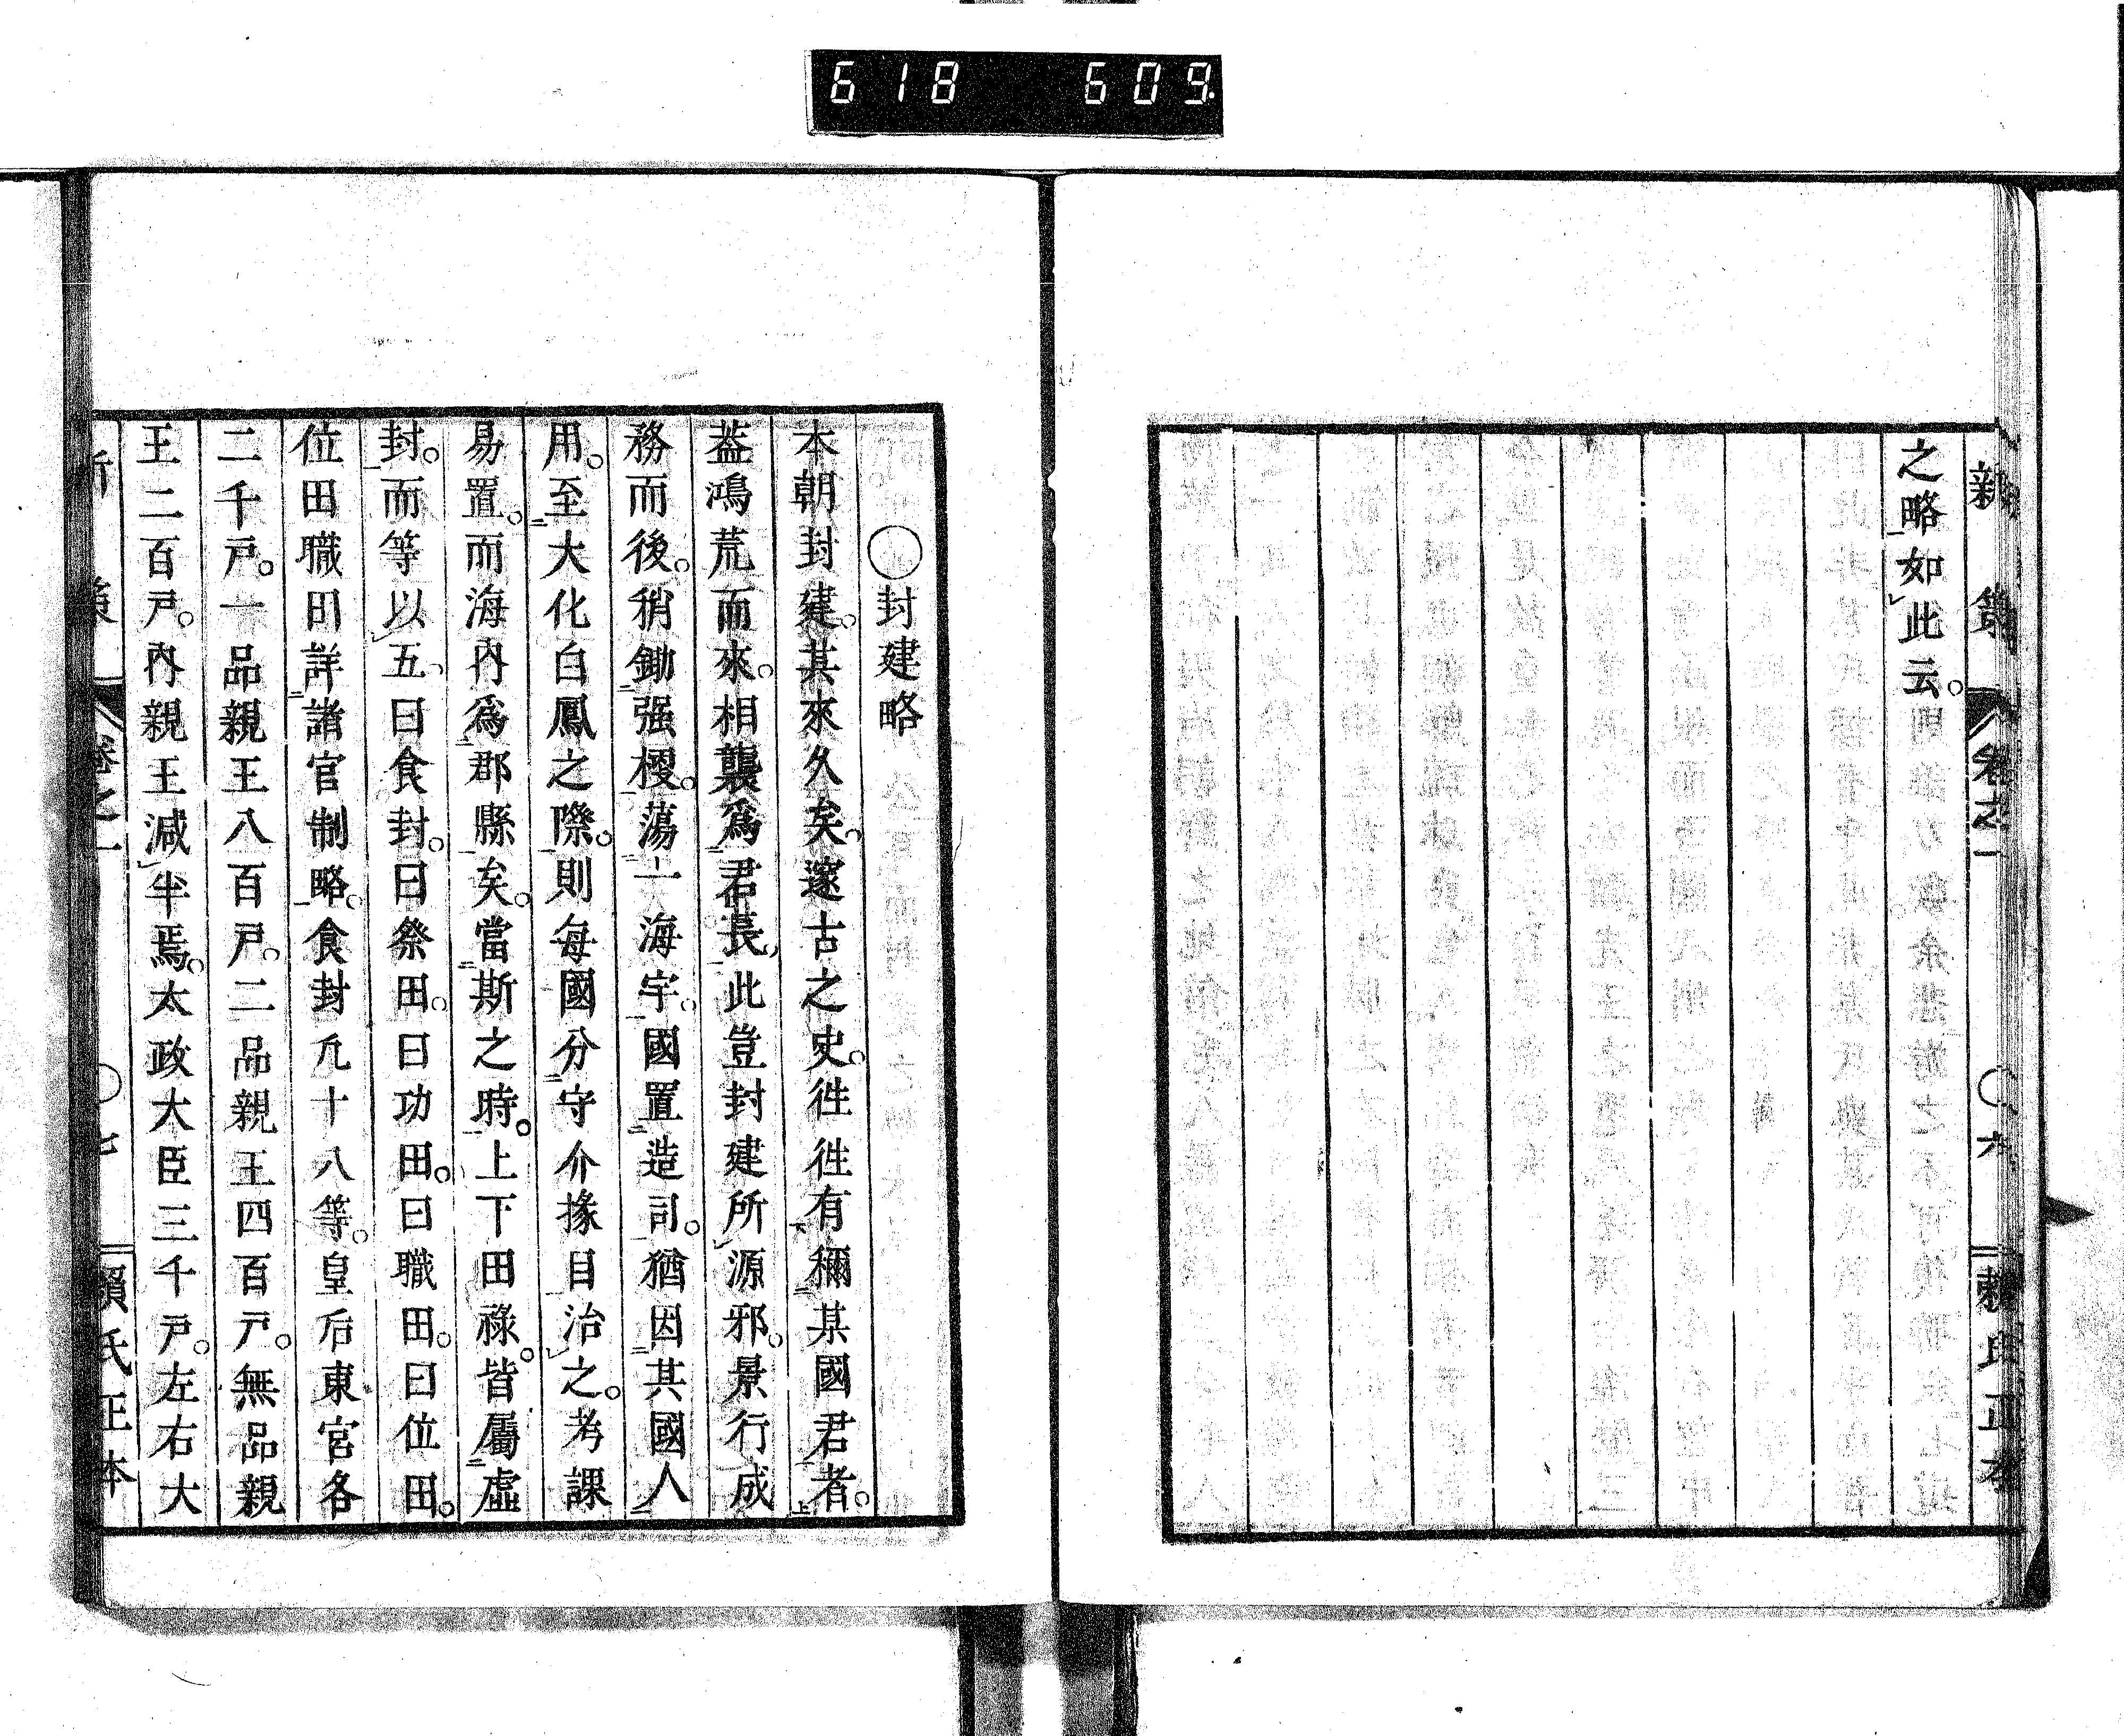 618 609.
新策 卷之一 〇六 賴氏正本
之略如此云。
〇封建略
本朝封建。其來久矣。邃古之史。徃徃有稱某國君者。
葢鴻荒而來。相襲爲君長、此豈封建所源邪。景行成
務而後。稍鋤强梗。蕩一海宇。國置造司。猶因其國人
用。至大化白鳳之際。則每國分守介掾目治之。考課
易置。而海內爲郡縣矣。當斯之時。上下田祿。皆屬虛
封。而等以五、曰食封。曰祭田。曰功田。曰職田。曰位田。
位田職田詳諸官制略。食封凢十八等。皇后東宮各
二千戶。一品親王八百戶。二品親王四百戶。無品親
王二百戶。內親王減半焉。太政大臣三千戶。左右大
新策 卷之一 〇七 賴氏正本